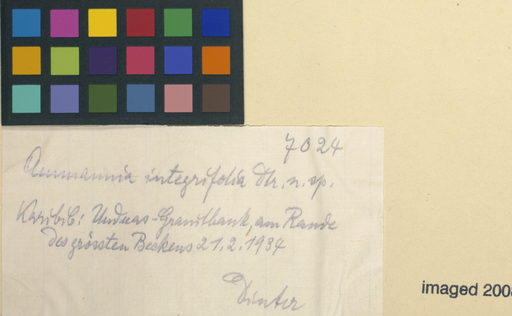 7024
Ammannia integrifolia Dtr. n. sp.
Karibib: Undeas-Granitbank, am Rande
des grössten Beckens 21.2.1934
Dinter
imaged 200